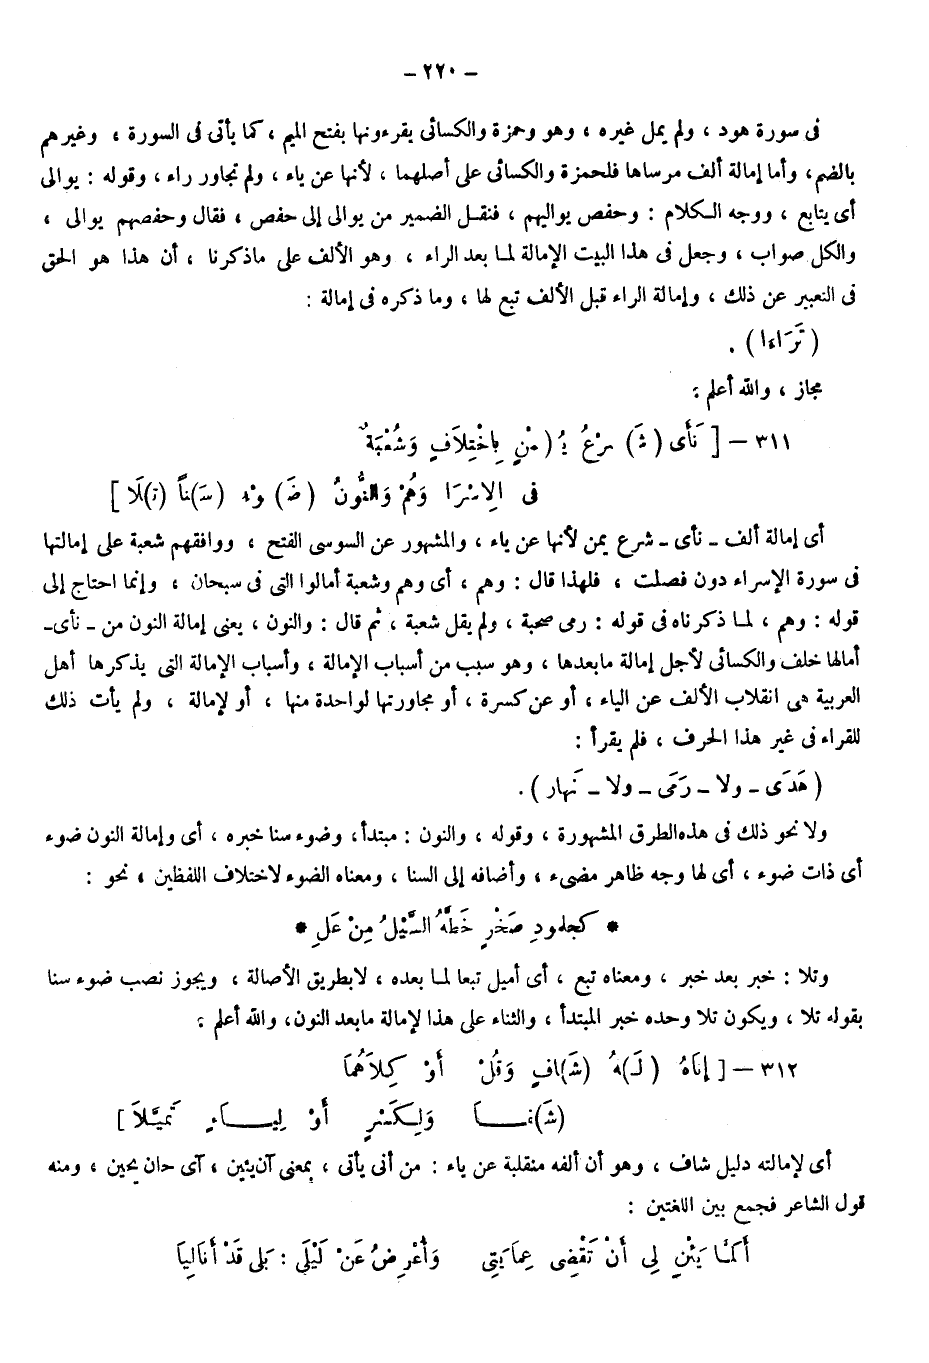 – ٢٢٠ –
فى سورة هود ، ولم يمل غيره ، وهو وحمزة والكسائى يقرءونها بفتح الميم ، كما يأتى فى السورة ، وغيرهم
بالضم، وأما إمالة ألف مرساها فلحمزة والكسائى على أصلهما ، لأنها عن ياء ، ولم تجاور راء ، وقوله : يوالى
أى يتابع ، ووجه الكلام : وحفص يواليهم ، فنقل الضمير من يوالى إلى حفص ، فقال وحفصهم يوالى ،
والكل صواب ، وجعل فى هذا البيت الإمالة لما بعد الراء ، وهو الألف على ماذكرنا ، أن هذا هو الحق
فى التعبير عن ذلك ، وإمالة الراء قبل الألف تبع لها ، وما ذكره فى إمالة :
( تَرَاءا ) .
مجاز ، والله أعلم :
٣١١ – [ نَأَى (شَ) رْعُ يُ (مْنٍ بِاخْتِلَافٍ وَشُعْبَةٌ
فى الِاسْرَا وَهُمْ وَالنُّونُ (ضَ) وْءُ (سَ)نًا (تَ)لَا ]
أى إمالة ألف ـ نأى ـ شرع يمن لأنها عن ياء ، والمشهور عن السوسى الفتح ، ووافقهم شعبة على إمالتها
فى سورة الإسراء دون فصلت ، فلهذا قال : وهم ، أى وهم وشعبة أمالوا التى فى سبحان ، وإنما احتاج إلى
قوله : وهم ، لما ذكرناه فى قوله : رمى صحبة ، ولم يقل شعبة ، ثم قال : والنون ، يعنى إمالة النون من ـ نأى ـ
أمالها خلف والكسائى لأجل إمالة مابعدها ، وهو سبب من أسباب الإمالة ، وأسباب الإمالة التى يذكرها أهل
العربية هى انقلاب الألف عن الياء ، أو عن كسرة ، أو مجاورتها لواحدة منها ، أو لإمالة ، ولم يأت ذلك
للقراء فى غير هذا الحرف ، فلم يقرأ :
( هَدَى ـ ولا ـ رَمَى ـ ولا ـ نَهار ) .
ولا نحو ذلك فى هذه الطرق المشهورة ، وقوله ، والنون : مبتدأ، وضوء سنا خبره ، أى وإمالة النون ضوء
أى ذات ضوء ، أى لها وجه ظاهر مضىء ، وأضافه إلى السنا ، ومعناه الضوء لاختلاف اللفظين ، نحو :
* كجلمودِ صَخْرٍ حَطَّهُ السَّيْلُ مِنْ عَلِ *
وتلا : خبر بعد خبر ، ومعناه تبع ، أى أميل تبعا لما بعده ، لابطريق الأصالة ، ويجوز نصب ضوء سنا
بقوله تلا ، ويكون تلا وحده خبر المبتدأ ، والثناء على هذا لإمالة مابعد النون، والله أعلم :
٣١٢ – [ إِنَاهُ (لَ)هُ (شَ)افٍ وَقُلْ أَوْ كِلَاهُمَا
(شَ)فَـا وَلِكَسْرٍ أَوْ لِيَـاءٍ تَمَيَّلَا ]
أى لإمالته دليل شاف ، وهو أن ألفه منقلبة عن ياء : من أنى يأنى ، بمعنى آن يئين ، أى حان يحين ، ومنه
قول الشاعر فجمع بين اللغتين :
أَلَمَّا يَئِنْ لِى أَنْ تَقَضَّى عِمَايَتِى وَأُعْرِضُ عَنْ لَيْلَى : بَلى قَدْ أَنَالِيَا